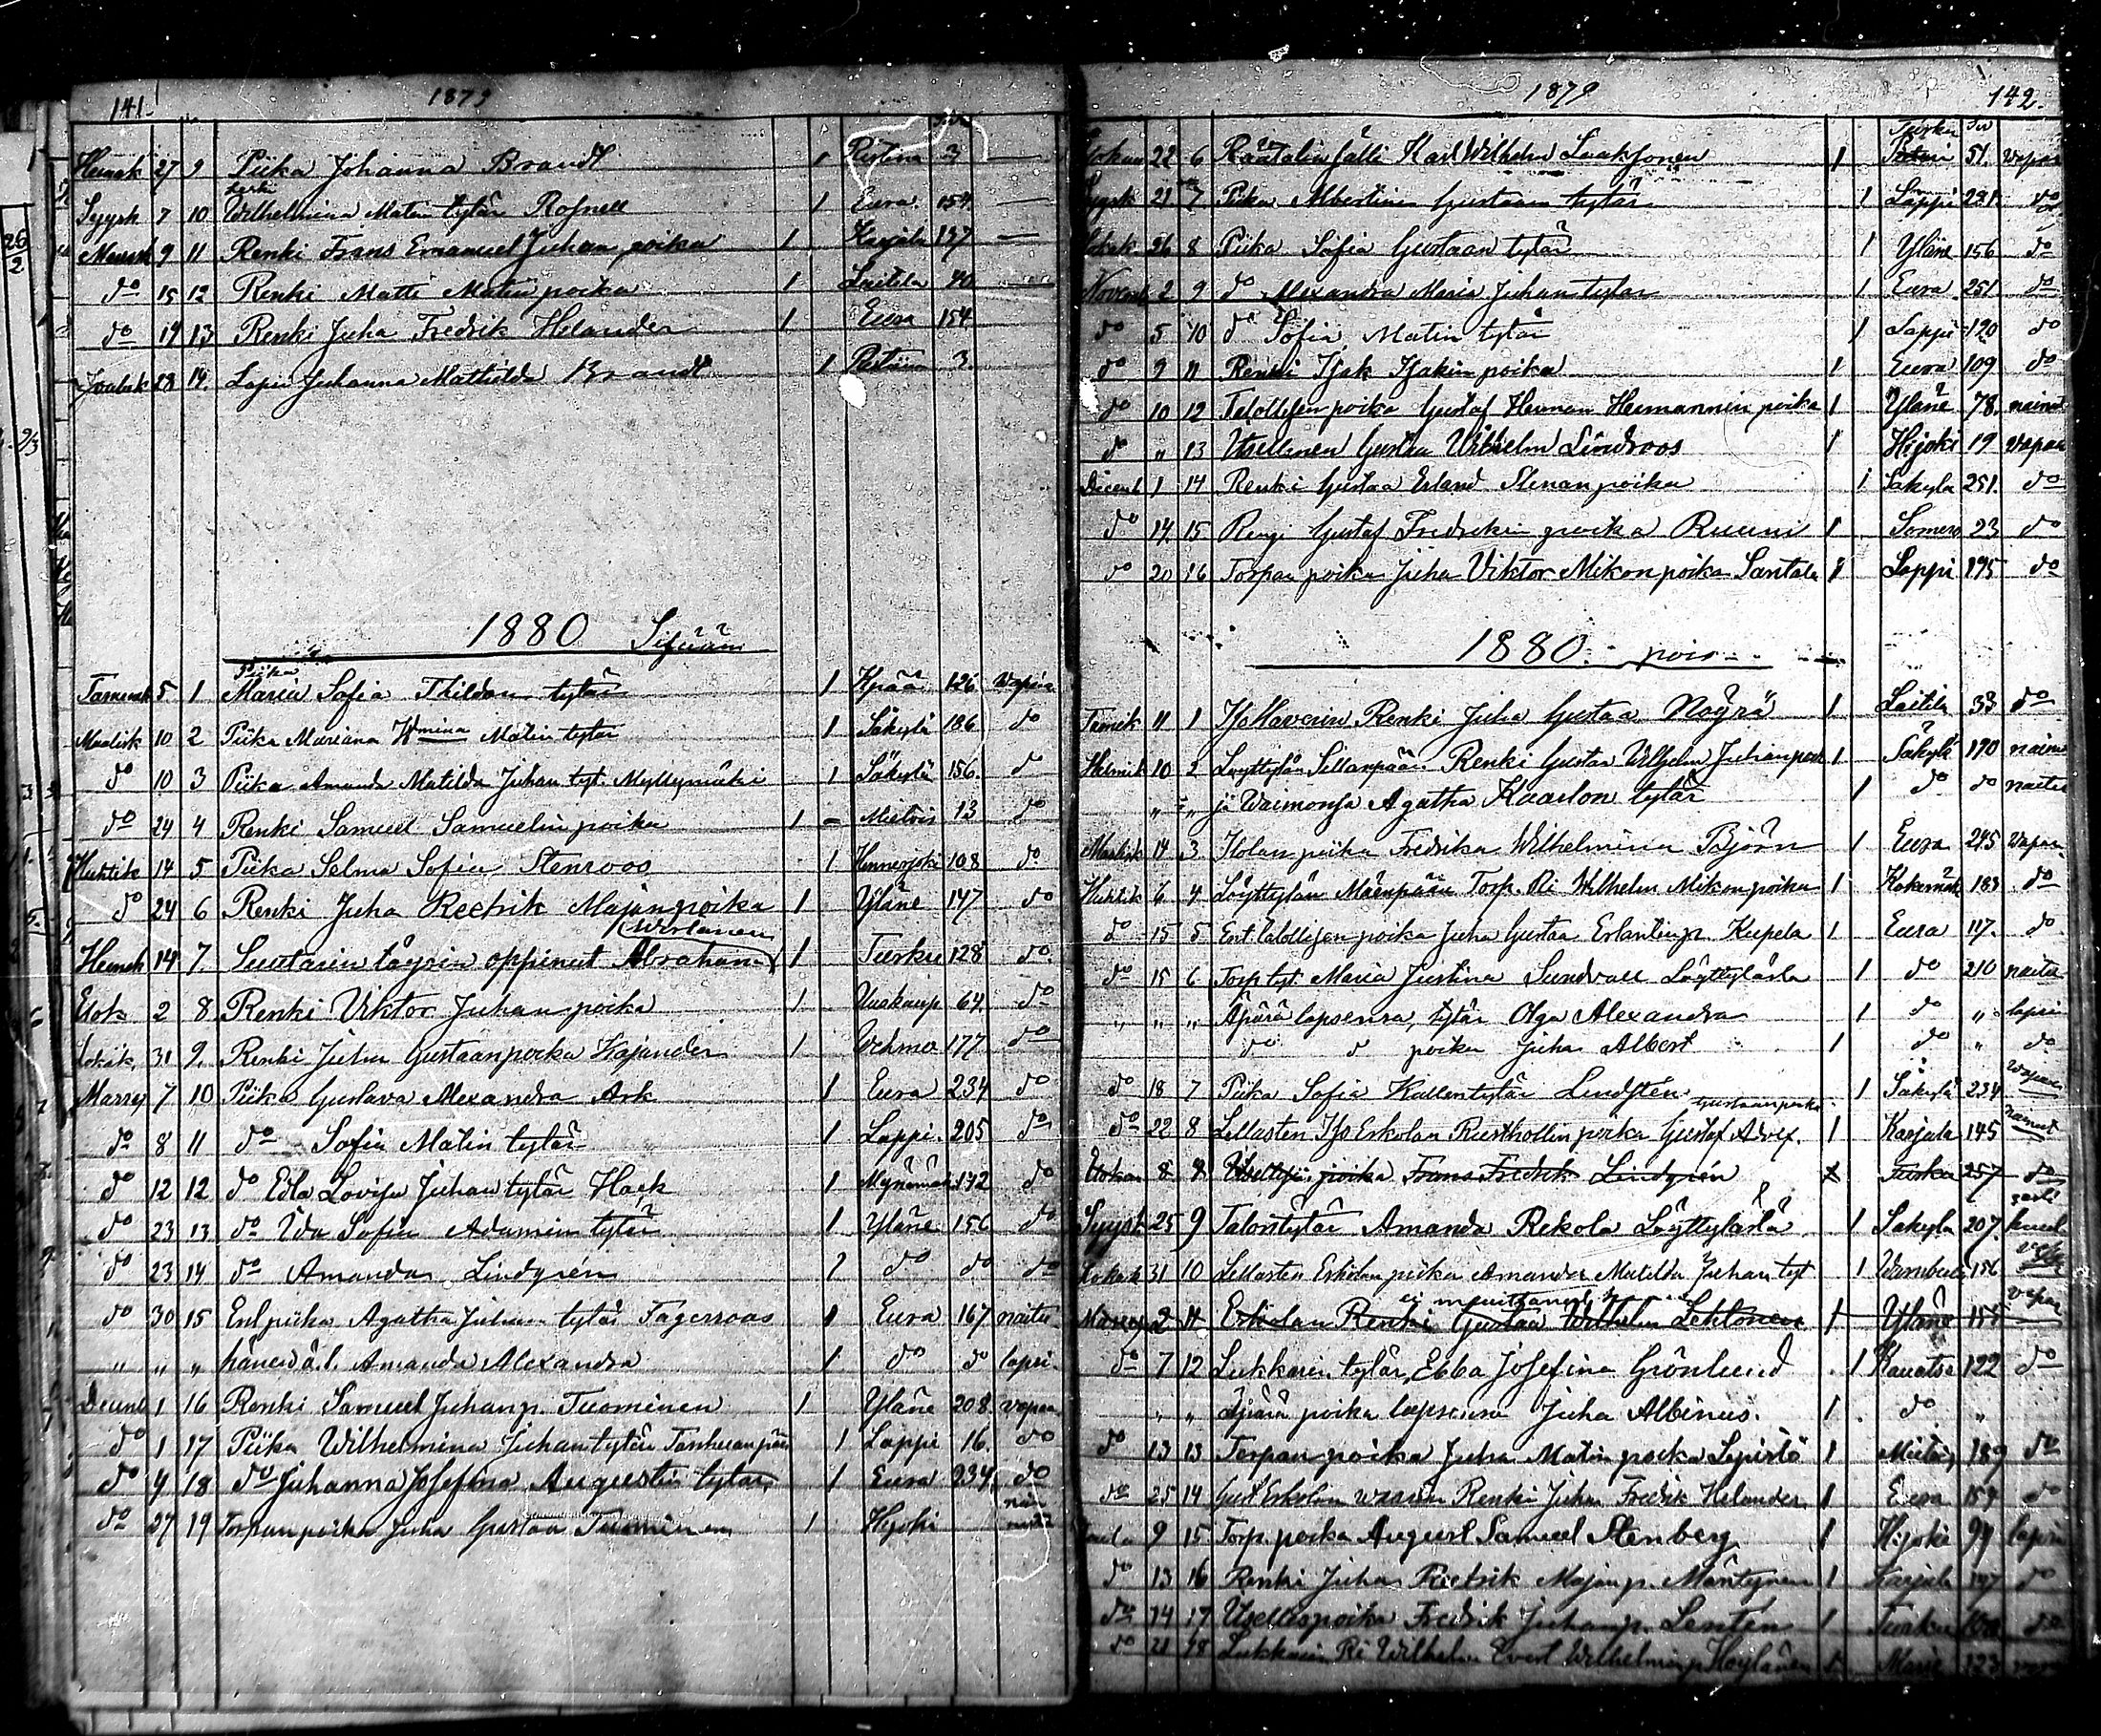 141. 1879
Heinäk 27 9 Piika Johanna Brandt 1 Ristiina 3 —
Leski
Syysk 7 10 Wilhelmina Matin tytär Rosnell 1 Eura 154 —
Marrask 9 11 Renki Frans Emanuel Juhan poika 1 Karjala 137 —
do 15 12 Renki Matti Matin poika 1 Laitila 40 —
do 19 13 Renki Juha Fredrik Helander 1 Eura 154
Jouluk 28 14 Lapsi Juhanna Mathilda Brandt 1 3
1880 Sisään
Piika
Tammik 5 1 Maria Sofia Thildan tytär 1 126 Wapaa
Maalisk 10 2 Piika Mariana Wmina Matin tytär 1 Säkylä 186 do
do 10 3 Piika Amanda Matilda Juhan tyt. Myllymäki 1 Säkylä 156 do
do 24 4 Renki Samuel Samuelin poika 1 – Mietois 13 do
Huhtik 14 5 Piika Selma Sofia Stenroos 1 108 do
do 24 6 Renki Juha Reetrik Majanpoika 1 Yläne 147 do
Wirtanen
Heinäk 14 7 Suutarin täysin oppinut Abraham 1 Turku 128 do
Elok 2 8 Renki Viktor Juhan poika 1 Uusikaup 64 do
Lokak 31 9 Renki Juha Gustaanpoika Kajander 1 Vehmaa 177 do
Marrask 7 10 Piika Gustava Alexandra Ark 1 Eura 234 do
do 8 11 do Sofia Matin tytär 1 Lappi 205 do
do 12 12 do Edla Lovisa Juhan tytär Hack 1 Mynämäk 142 do
do 23 13 do Ida Sofia Adamin tytär 1 Yläne 156 do
do 23 14 do Amanda Lindgrén 1 do do do
do 30 15 Ent piika Agatha Juhan tytär Fagerroos 1 Eura 167 naitu
" " " hänen ä.l. Amanda Alexandra 1 do do lapsi
Decemb 1 16 Renki Samuel Juhanp. Tuominen 1 Yläne 208 vapaa
do 1 17 Piika Wilhelmina Juhantytär 1 Lappi 16 do
do 4 18 do Juhanna Josefina Augustin tytär 1 Eura 234 do
do 27 19 Torpanpoika Juha Gustaa Tuominen 1 Hijoki
1879 142.
Turku
22 6 Räätalin sälli Karl Wilhelm Laaksonen 1 51 vapaa
Syysk 21 7 Piika Albertina Gustaan tytär 1 Lappi 221 do
Lokak 26 8 Piika Sofia Gustaan tytär 1 Yläne 156 do
Novemb 2 9 do Alexandra Maria Juhan tytär 1 Eura 251 do
do 5 10 do Sofia Matin tytär 1 Lappi 120 do
do 9 11 Renki Isak Isakin poika 1 Eura 109 do
do 10 12 Talollisen poika Gustaf Herman Hermannin poika 1 Yläne 78
do " 13 Itsellinen Gustaa Wilhelm Lindroos 1 Hijoki 19 vapaa
Decemb 1 14 Renki Gustaa Erland Stenanpoika 1 Säkylä 251 do
do 14 15 Rengi Gustaf Fredrikin poika Ruuni 1 Somero 23 do
do 20 16 Torpan poika Juha Viktor Mikon poika Santala 1 Lappi 195 do
1880 pois
Tammik 11 1 Iso Haverin Renki Juha Gustaa Nöyrä 1 Laitila 33 do
Helmik 10 2 Löyttylän Sillanpään Renki Gustaa Wilhelm Juhanpoik 1 Säkylä 190
" " ja Waimonsa Agatha Kaarlon tytär 1 do do naitu
Maalisk 14 3 piika Fredrika Wilhelmina Björn 1 Eura 245 vapaa
Huhtik 6 4 Löyttylän Mäenpään Torp. Ri Wilhelm Mikon poika 1 Kokemäk 183 do
do 15 5 Ent talollisen poika Juha Gustaa Erlantinp. Kupela 1 Eura 117 do
do 15 6 Torp tyt Maria Justina Sundvall Löyttylästä 1 do 210 naitu
" " " Äpärä lapsensa, tytär Olga Alexandra 1 do " lapsi
do do poika Juha Albert 1 do " do
do 18 7 Piika Sofia Kallentytär Lindstén 1 Säkylä 234 vapaa
Gustaanpoika
do 22 8 Lellasten Iso Eskolan Rusthollin poika Gustaf Adolf. 1 Karjala 145
Elokuu 8 8 poika Frans Fredrik Lindgrén Turku 257 do
Syysk 25 9 Talontytär Amanda Rekola Löyttylästä 1 Säkylä 207
Lokak 31 10 Lellasten Eskolan piika Amanda Matilda Juhan tyt 1 156
ei muuttanut
Marrask 2 11 Eskolan Renki Gustaa Wilhelm Lehtonen 1 Yläne 155 vapaa
do 7 12 Lukkarin tytär, Ebba Josefina Grönlund 1 Kauatsa 122 do
" " Äpärä poika lapsensa Juha Albinus. 1 do "
do 13 13 Torpan poika Juha Matin poika Lepistö 1 189 do
do 25 14 Eskolan Renki Juha Fredrik Helander 1 Eura 154 do
9 15 Torp. poika August Samuel Stenberg 1 Hijoki 99 lapsi
do 13 16 Renki Juha Reetrik Majanp. Mäntynen 1 Karjala 147 do
do 14 17 Itsellis poika Fredrik Juhanp. Lentén 1 Turku do
do 21 18 Lukkarin Ri Wilhelm Evert Wilhelminp 1 123